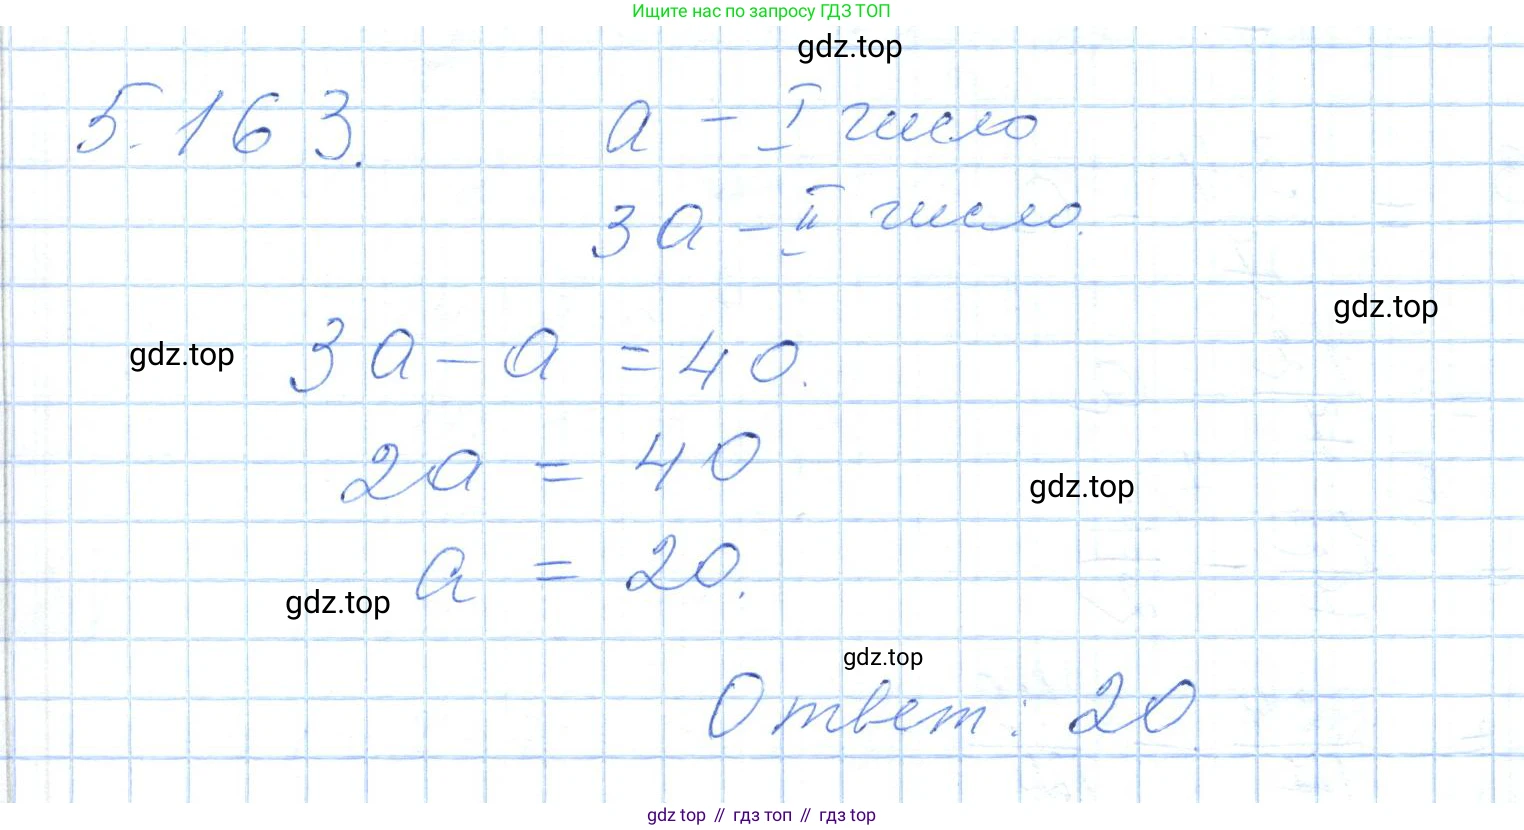 Ищите нас по запросу ГДЗ ТОП
gdz.top
5.163.
a - I число
3a - II число.
gdz.top
gdz.top
3a - a = 40.
2a = 40
gdz.top
a = 20.
gdz.top
gdz.top
Ответ: 20.
gdz top // гдз топ // гдз top